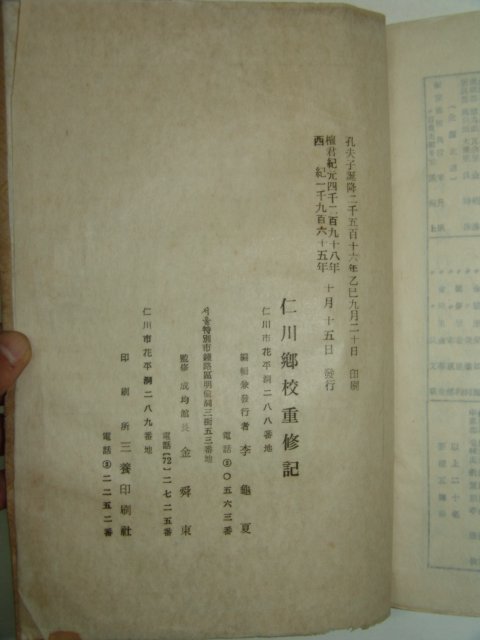 孔夫子誕降二千五百十六年乙巳九月二十日 印刷
檀君紀元四千二百九十八年
西紀一千九百六十五年 十月十五日 發行
仁川鄕校重修記
仁川市花平洞二八八番地
編輯兼發行者 李龜夏
電話③〇五六三番
서울特別市鍾路區明倫洞三街五三番地
監修 成均館長 金舜東
電話(72)二七二五番
仁川市花平洞二八九番地
印刷所 三養印刷社
電話③二二五二番
以上二十名